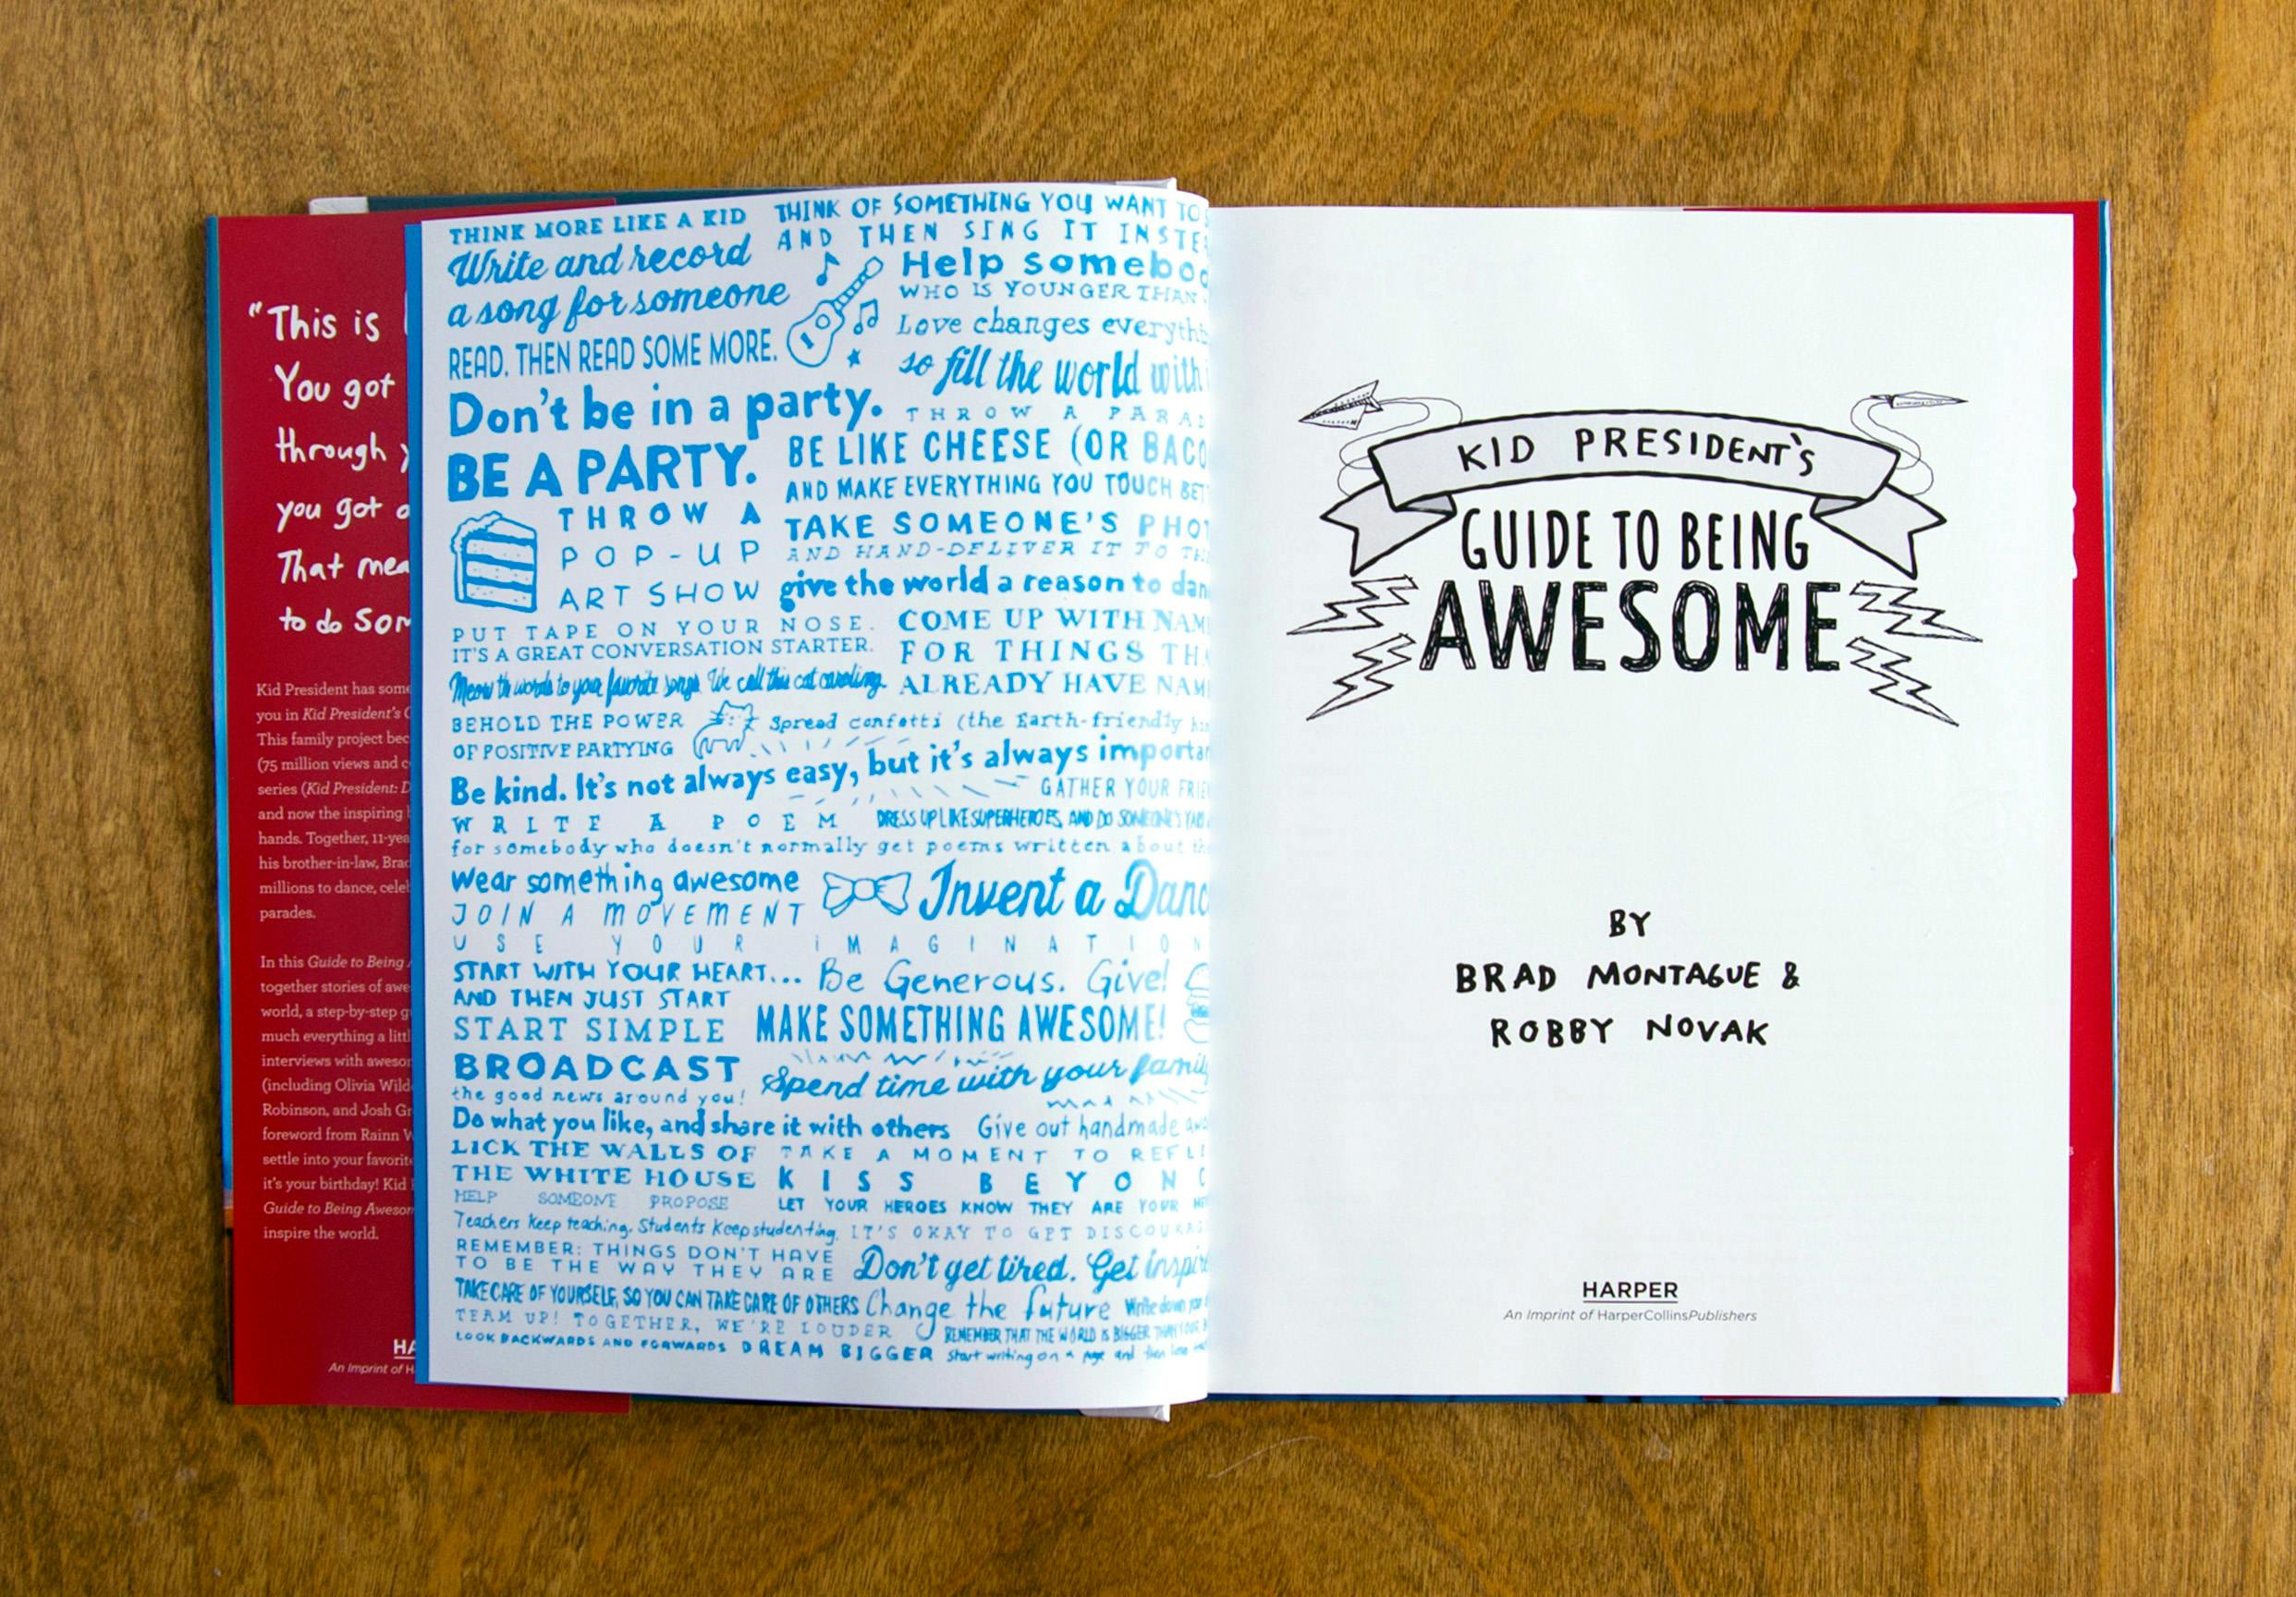 "This is
You got
through
you got
That mea
to do Som
Kid President has some
you in Kid President's G
This family project bec
(75 million views and c
series (Kid President: D
and now the inspiring
hands. Together, 11-yea
his brother-in-law, Brad
millions to dance, celeb
parades.
In this Guide to Being
together stories of awe
world, a step-by-step g
much everything a littl
interviews with awesom
(including Olivia Wild
Robinson, and Josh Gr
foreword from Rainn W
settle into your favorite
it's your birthday! Kid
Guide to Being Awesom
inspire the world.
HA
An Imprint of H
THINK MORE LIKE A KID
Write and record
a song for someone
READ. THEN READ SOME MORE.
THINK OF SOMETHING YOU WANT TO S
AND THEN SING IT INSTE
Help somebod
WHO IS YOUNGER THAN
Love changes everythi
so fill the world with
Don't be in a party.
BE A PARTY.
THROW A PARA
BE LIKE CHEESE (OR BACO
AND MAKE EVERYTHING YOU TOUCH BET
THROW A
POP-UP
ART SHOW
TAKE SOMEONE'S PHOT
AND HAND-DELIVER IT TO TH
give the world a reason to dan
PUT TAPE ON YOUR NOSE.
IT'S A GREAT CONVERSATION STARTER.
COME UP WITH NAM
FOR THINGS THA
ALREADY HAVE NAM
Meow the words to your favorite songs. We call this cat caroling.
BEHOLD THE POWER
OF POSITIVE PARTYING
Spread confetti (the Earth-friendly
Be kind. It's not always easy, but it's always importan
GATHER YOUR FRIE
DRESS UP LIKE SUPERHEROES, AND DO SOMEONE'S YARD
WRITE A POEM
for somebody who doesn't normally get poems written about the
Wear something awesome
JOIN A MOVEMENT
Invent a Danc
USE YOUR IMAGINATION
START WITH YOUR HEART...
AND THEN JUST START
Be Generous. Give!
START SIMPLE
MAKE SOMETHING AWESOME!
BROADCAST
the good news around you!
Spend time with your family
Do what you like, and share it with others
Give out handmade
LICK THE WALLS OF
THE WHITE HOUSE
TAKE A MOMENT TO REFLE
KISS BEYONC
HELP SOMEONE PROPOSE
LET YOUR HEROES KNOW THEY ARE YOUR HE
Teachers keep teaching. Students keep studenting.
IT'S OKAY TO GET DISCOURAG
REMEMBER: THINGS DON'T HAVE
TO BE THE WAY THEY ARE
Don't get tired. Get inspire
TAKE CARE OF YOURSELF, SO YOU CAN TAKE CARE OF OTHERS
Change the future
Write down your
TEAM UP! TOGETHER, WE'RE LOUDER
REMEMBER THAT THE WORLD IS BIGGER THAN YOUR
LOOK BACKWARDS AND FORWARDS
DREAM BIGGER
Start writing on a page and then
KID PRESIDENT'S
GUIDE TO BEING
AWESOME
BY
BRAD MONTAGUE &
ROBBY NOVAK
HARPER
An Imprint of HarperCollinsPublishers